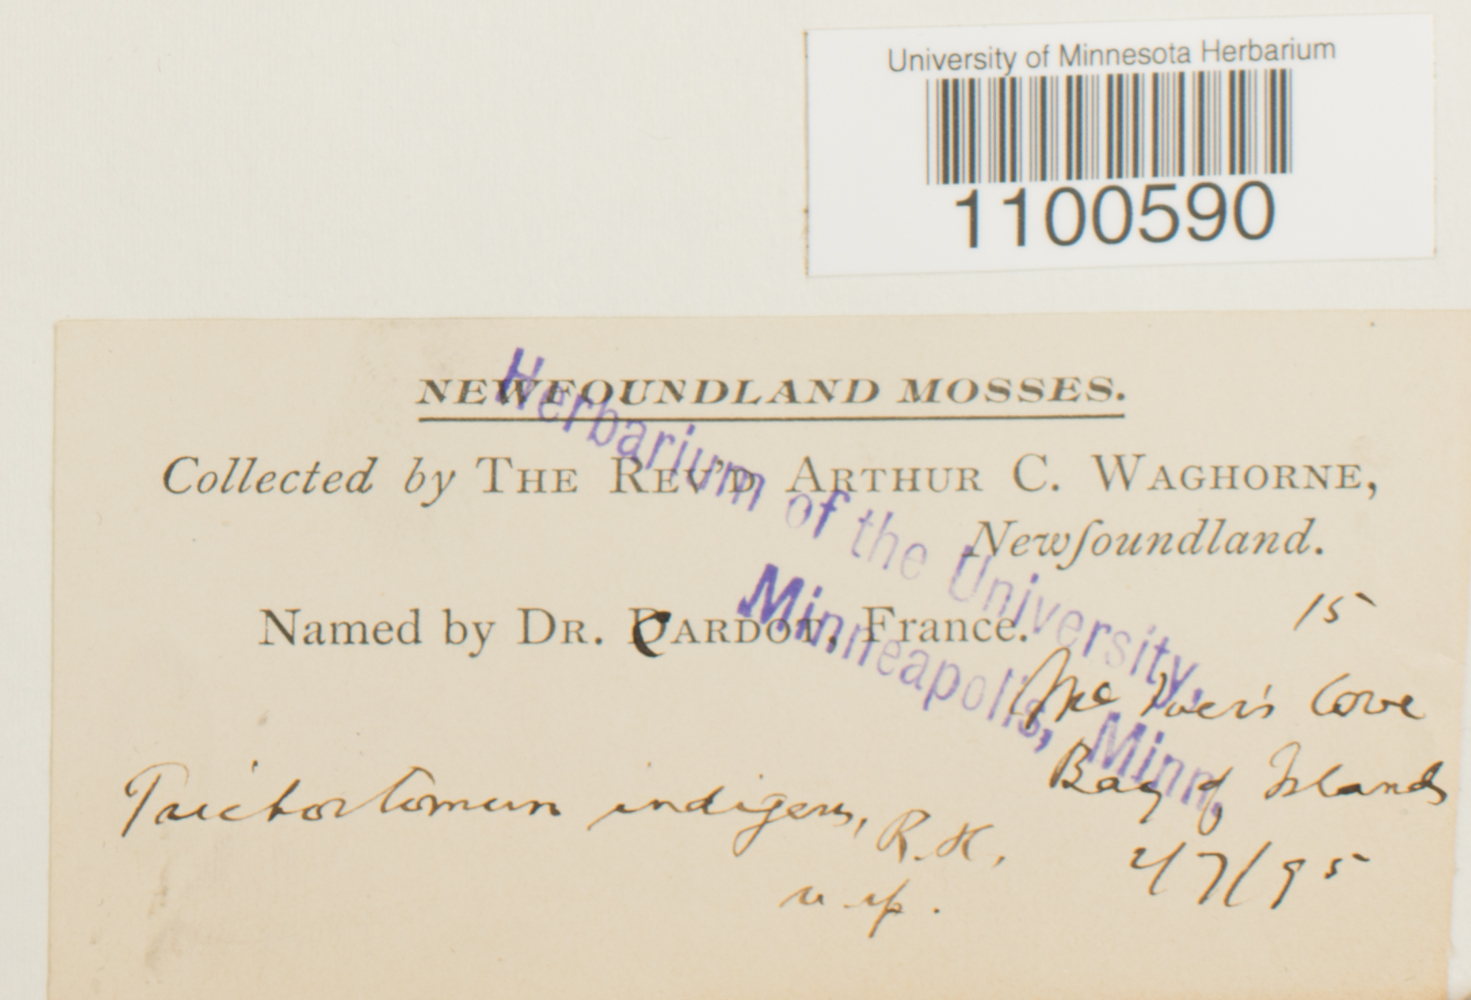 University of Minnesota Herbarium
1100590
NEWFOUNDLAND MOSSES.
Collected by THE REV'D ARTHUR C. WAGHORNE,
Newfoundland.
Herbarium of the University,
Minneapolis, Minn.
Named by DR. CARDOT, France.
15
Mc Iver's Cove
Bay of Islands
Trichostomum indigens, R. &
n. sp.
/7/95